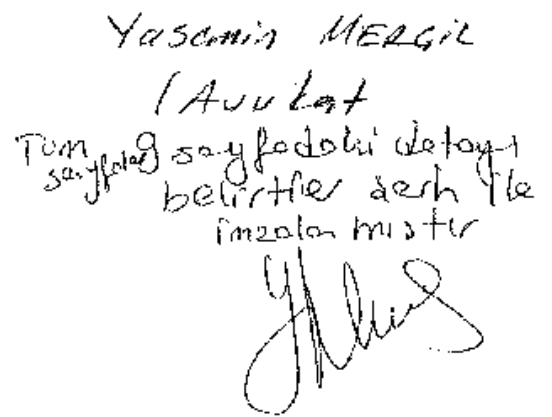 Yasemin MERGİL
/ Avukat
Tüm sayfalar 9 sayfadaki detayı
belirtir şerh ile
imzalanmıştır